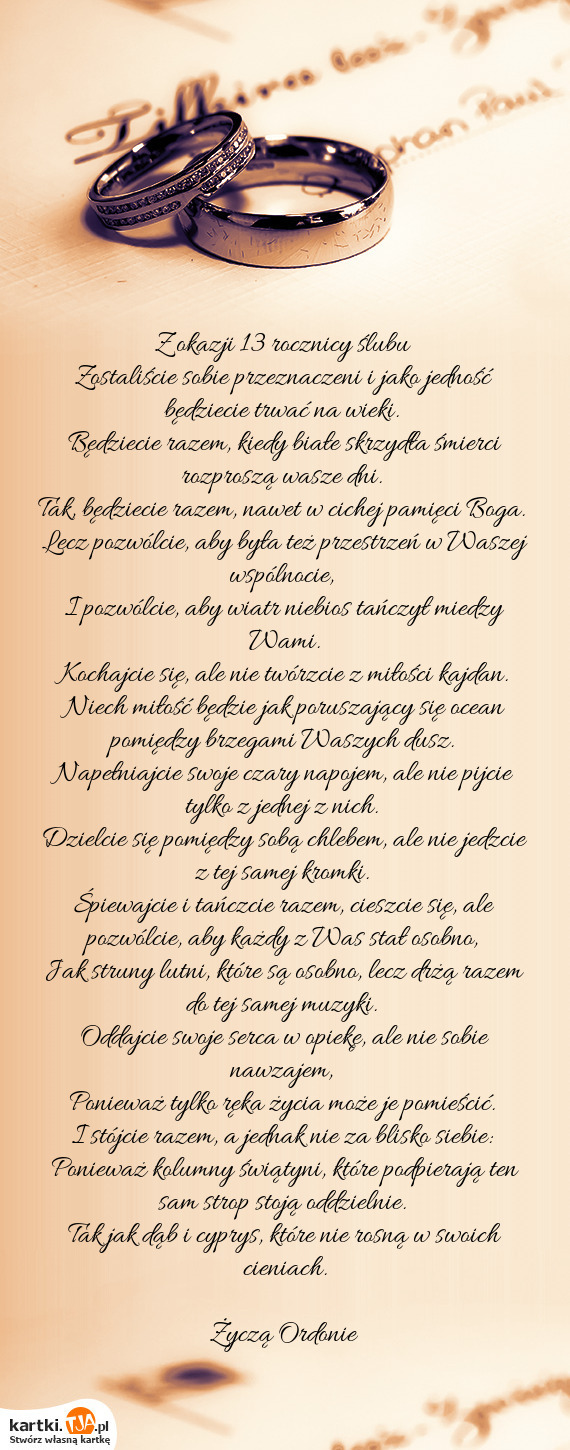 Z okazji 13 rocznicy ślubu
Zostaliście sobie przeznaczeni i jako jedność
będziecie trwać na wieki.
Będziecie razem, kiedy białe skrzydła śmierci
rozproszą wasze dni.
Tak, będziecie razem, nawet w cichej pamięci Boga.
Lecz pozwólcie, aby była też przestrzeń w Waszej
wspólnocie,
I pozwólcie, aby wiatr niebios tańczył miedzy
Wami.
Kochajcie się, ale nie twórzcie z miłości kajdan.
Niech miłość będzie jak poruszający się ocean
pomiędzy brzegami Waszych dusz.
Napełniajcie swoje czary napojem, ale nie pijcie
tylko z jednej z nich.
Dzielcie się pomiędzy sobą chlebem, ale nie jedzcie
z tej samej kromki.
Śpiewajcie i tańczcie razem, cieszcie się, ale
pozwólcie, aby każdy z Was stał osobno,
Jak struny lutni, które są osobno, lecz drżą razem
do tej samej muzyki.
Oddajcie swoje serca w opiekę, ale nie sobie
nawzajem,
Ponieważ tylko ręka życia może je pomieścić.
I stójcie razem, a jednak nie za blisko siebie:
Ponieważ kolumny świątyni, które podpierają ten
sam strop stoją oddzielnie.
Tak jak dąb i cyprys, które nie rosną w swoich
cieniach.
Życzą Ordonie
kartki.TJA.pl
Stwórz własną kartkę